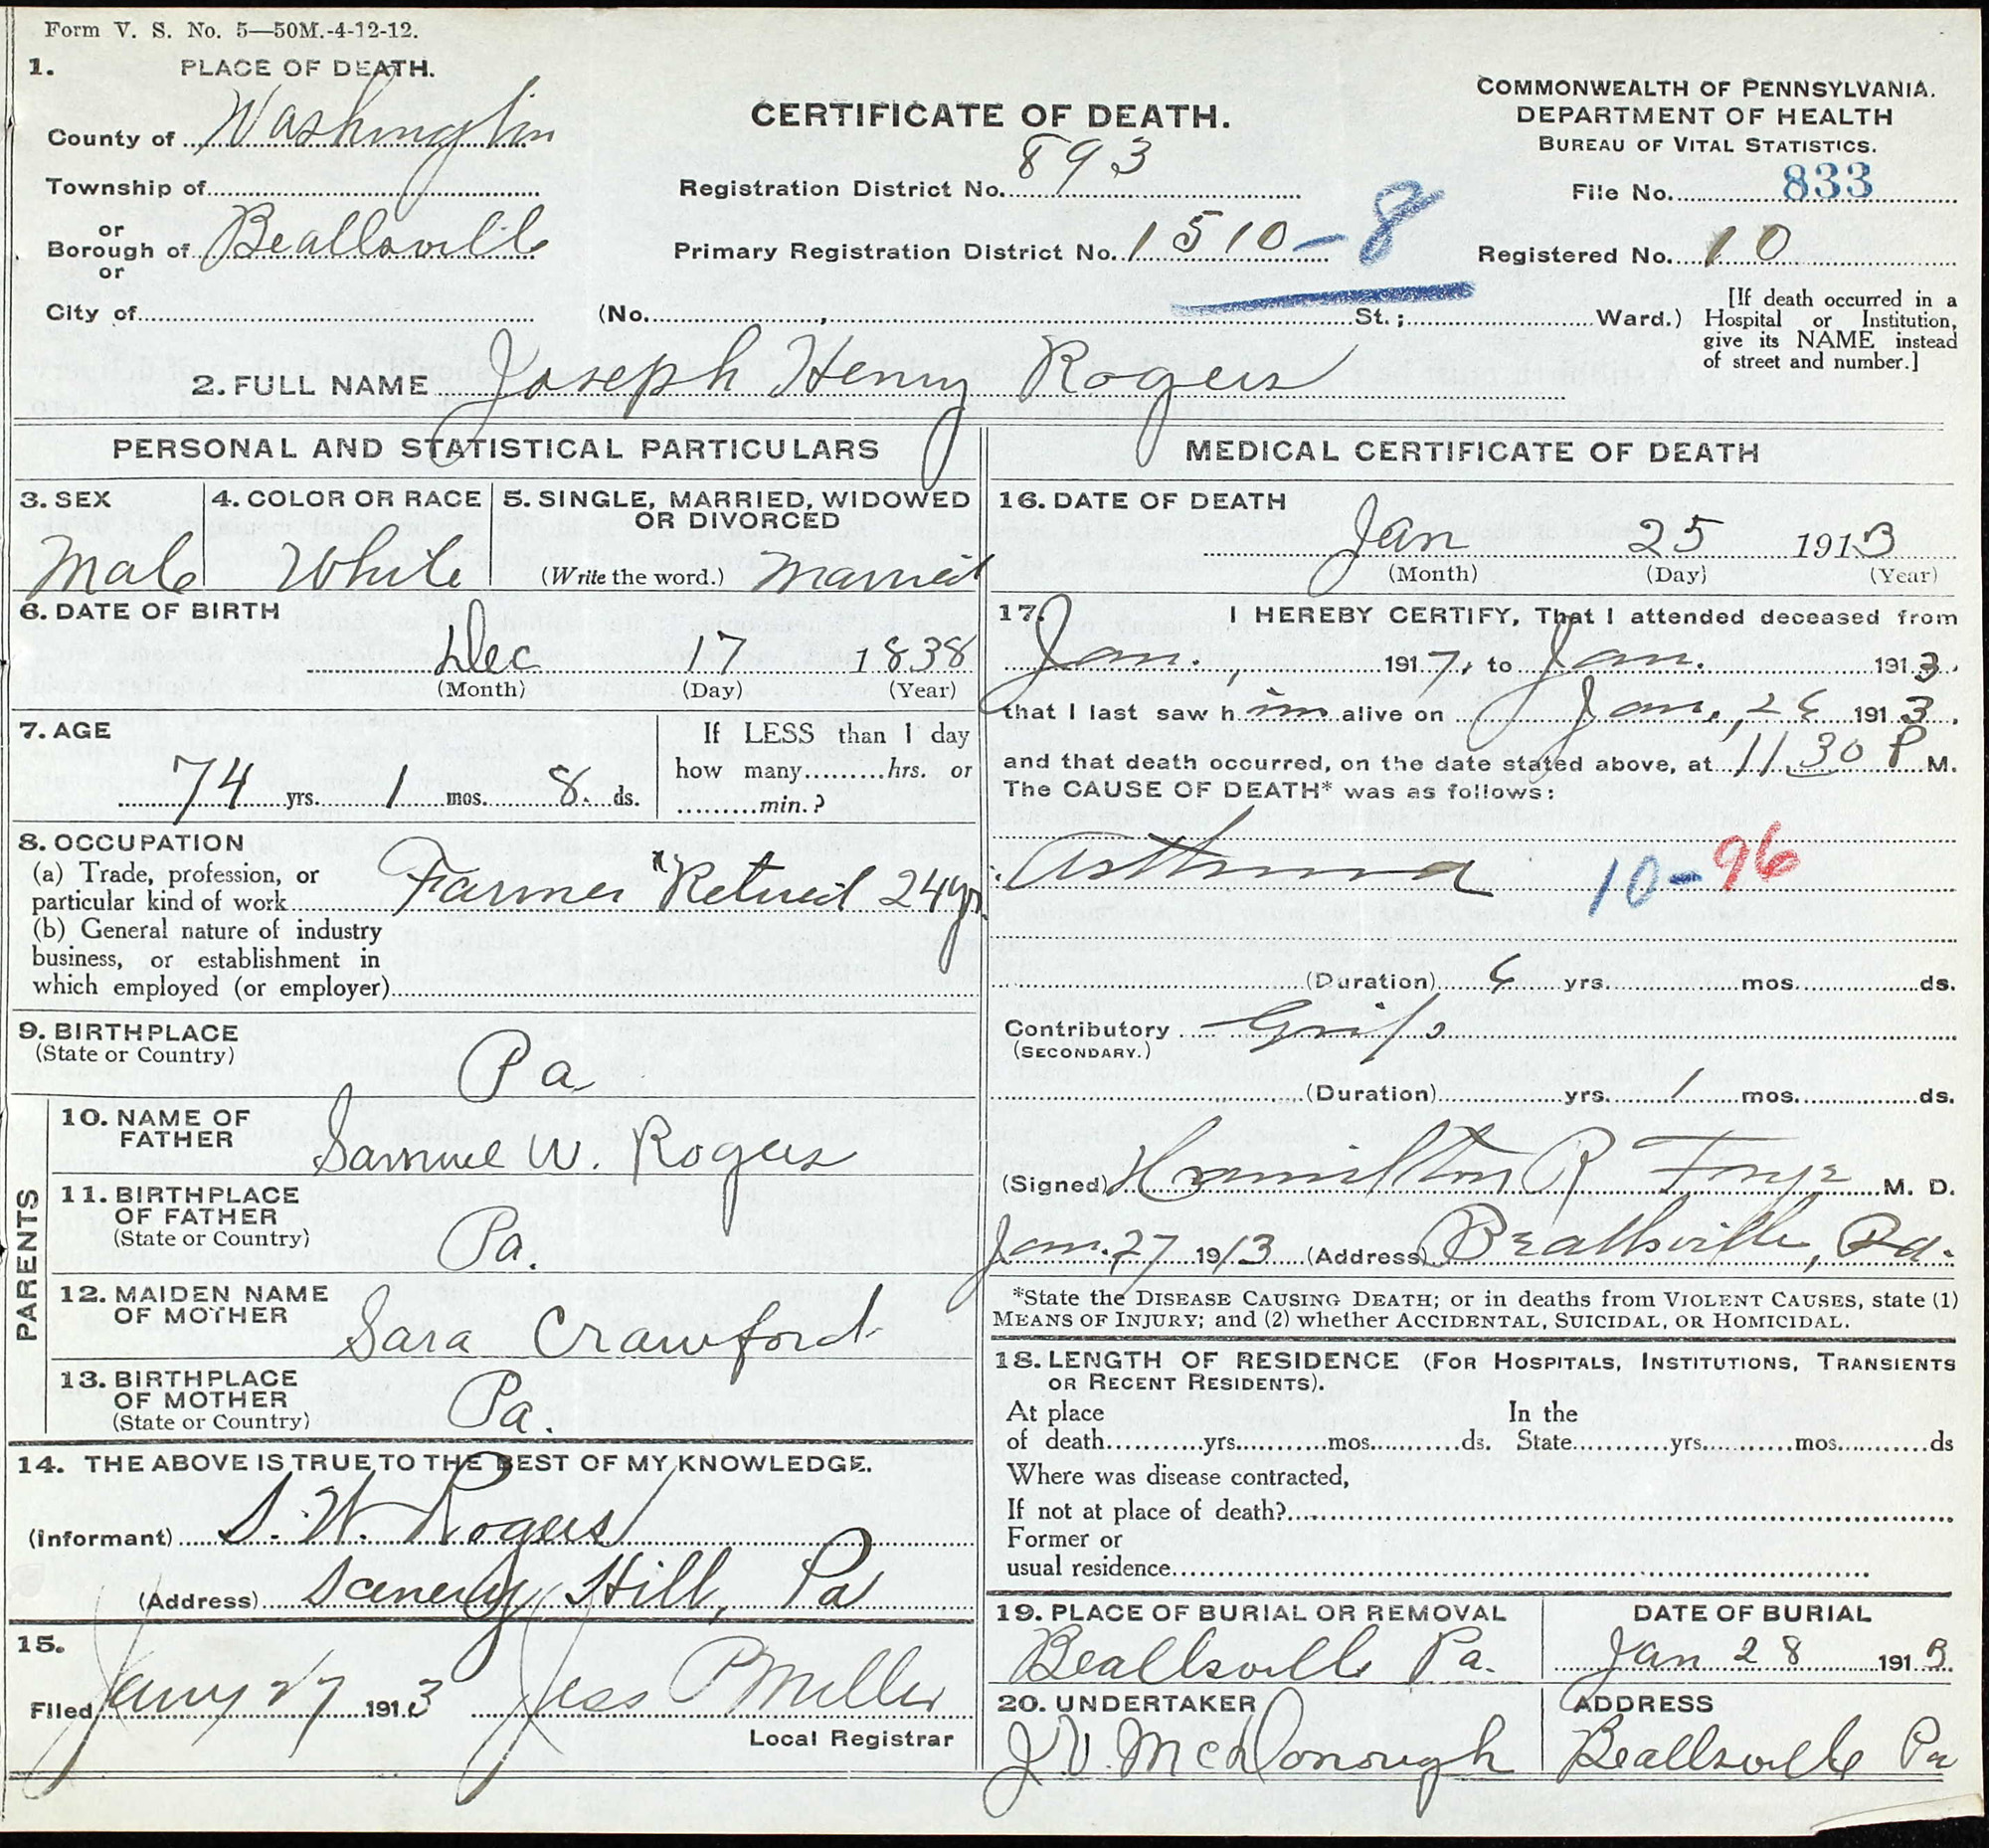 Form V. S. No. 5—50M.-4-12-12.
1. PLACE OF DEATH.
County of Washington
Township of
or
Borough of Beallsville
or
City of
CERTIFICATE OF DEATH.
Registration District No. 893
Primary Registration District No. 1510-8
(No. , St.; Ward.)
COMMONWEALTH OF PENNSYLVANIA.
DEPARTMENT OF HEALTH
BUREAU OF VITAL STATISTICS.
File No. 833
Registered No. 10
[If death occurred in a
Hospital or Institution,
give its NAME instead
of street and number.]
2. FULL NAME Joseph Henry Rogers
PERSONAL AND STATISTICAL PARTICULARS
3. SEX
Male
4. COLOR OR RACE
White
5. SINGLE, MARRIED, WIDOWED
OR DIVORCED
(Write the word.) Married
6. DATE OF BIRTH
Dec 17 1838
(Month) (Day) (Year)
7. AGE
74 yrs. 1 mos. 8 ds.
If LESS than 1 day
how many hrs. or
min.?
8. OCCUPATION
(a) Trade, profession, or
particular kind of work Farmer "Retired 24yr
(b) General nature of industry
business, or establishment in
which employed (or employer)
9. BIRTHPLACE
(State or Country)
Pa
PARENTS
10. NAME OF
FATHER
Samuel W. Rogers
11. BIRTHPLACE
OF FATHER
(State or Country)
Pa.
12. MAIDEN NAME
OF MOTHER
Sara Crawford
13. BIRTHPLACE
OF MOTHER
(State or Country)
Pa.
14. THE ABOVE IS TRUE TO THE BEST OF MY KNOWLEDGE.
(Informant) S. W. Rogers
(Address) Scenery Hill, Pa
15.
Filed 27 1913 Jess P Miller
Local Registrar
MEDICAL CERTIFICATE OF DEATH
16. DATE OF DEATH
Jan 25 1913
(Month) (Day) (Year)
17. I HEREBY CERTIFY, That I attended deceased from
Jan. , 1917, to Jan. 1913.
that I last saw him alive on Jan. 1913.
and that death occurred, on the date stated above, at 11.30 P M.
The CAUSE OF DEATH* was as follows:
Asthma 10-96
(Duration) yrs. mos. ds.
Contributory Grip
(SECONDARY.)
(Duration) yrs. 1 mos. ds.
(Signed) Hamilton R M. D.
Jan. 27 1913 (Address) Beallsville, Pa.
*State the DISEASE CAUSING DEATH; or in deaths from VIOLENT CAUSES, state (1)
MEANS OF INJURY; and (2) whether ACCIDENTAL, SUICIDAL, OR HOMICIDAL.
18. LENGTH OF RESIDENCE (FOR HOSPITALS, INSTITUTIONS, TRANSIENTS
OR RECENT RESIDENTS).
At place In the
of death yrs. mos. ds. State yrs. mos. ds
Where was disease contracted,
If not at place of death?
Former or
usual residence
19. PLACE OF BURIAL OR REMOVAL
Beallsville Pa.
DATE OF BURIAL
Jan 28 1913
20. UNDERTAKER
J.V. McDonough
ADDRESS
Beallsville Pa